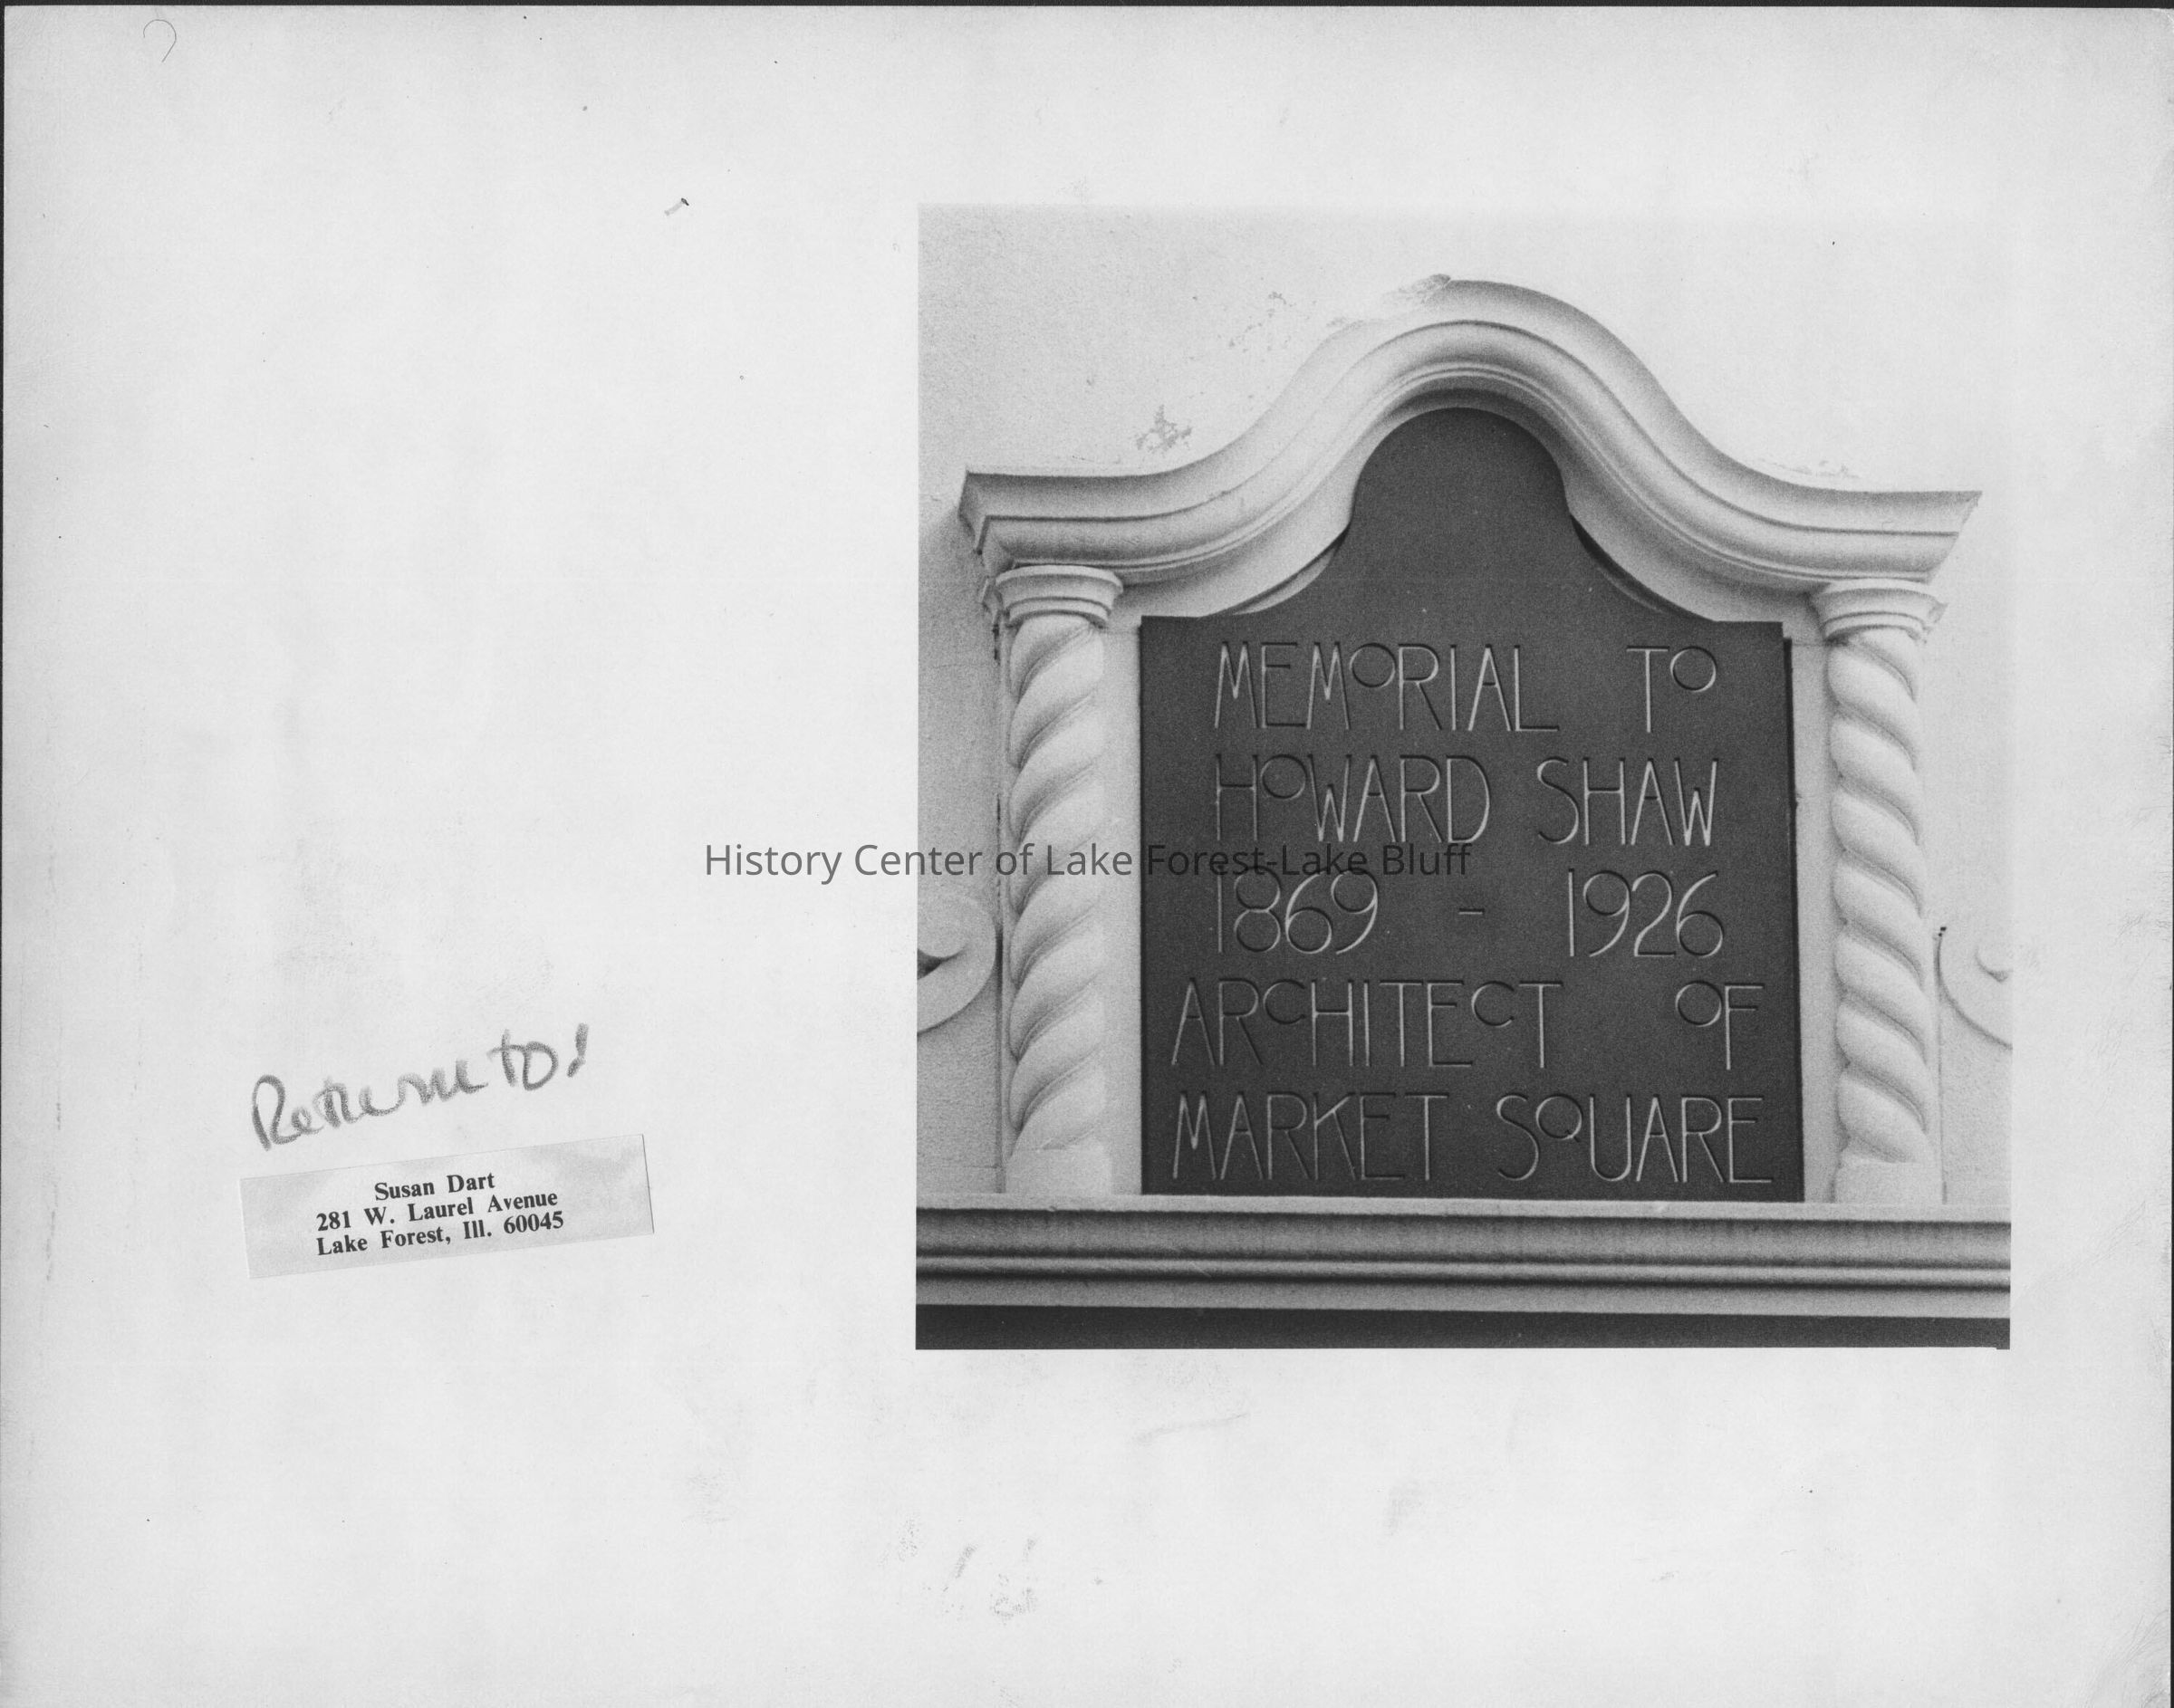 MEMORIAL TO
HOWARD SHAW
1869 - 1926
ARCHITECT OF
MARKET SQUARE
History Center of Lake Forest-Lake Bluff
Return to!
Susan Dart
281 W. Laurel Avenue
Lake Forest, Ill. 60045